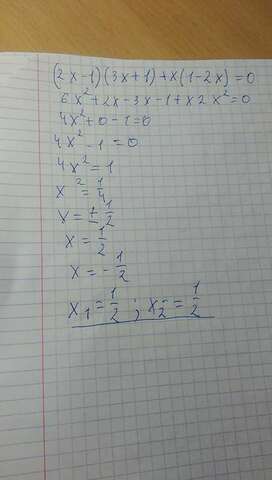 (2x-1)(3x+1)+x(1-2x)=0
6x²+2x-3x-1+x2x²=0
4x²+0-1=0
4x²-1=0
4x²=1
x²=1/4
x=±1/2
x=1/2
x=-1/2
x₁=1/2 ; x₂=1/2